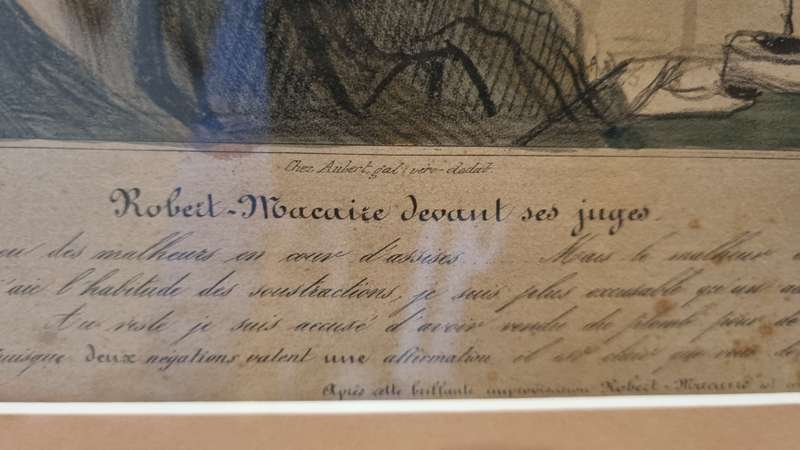 Chez Aubert, gal. véro-dodat.
Robert-Macaire devant ses juges.
eu des malheurs en cour d'assises Mais le malheur
j'aie l'habitude des soustractions, je suis plus excusable qu'un
Au reste je suis accusé d'avoir vendu du plomb pour de
puisque deux négations valent une affirmation, il est clair que
Après cette brillante improvisation Robert-Macaire est